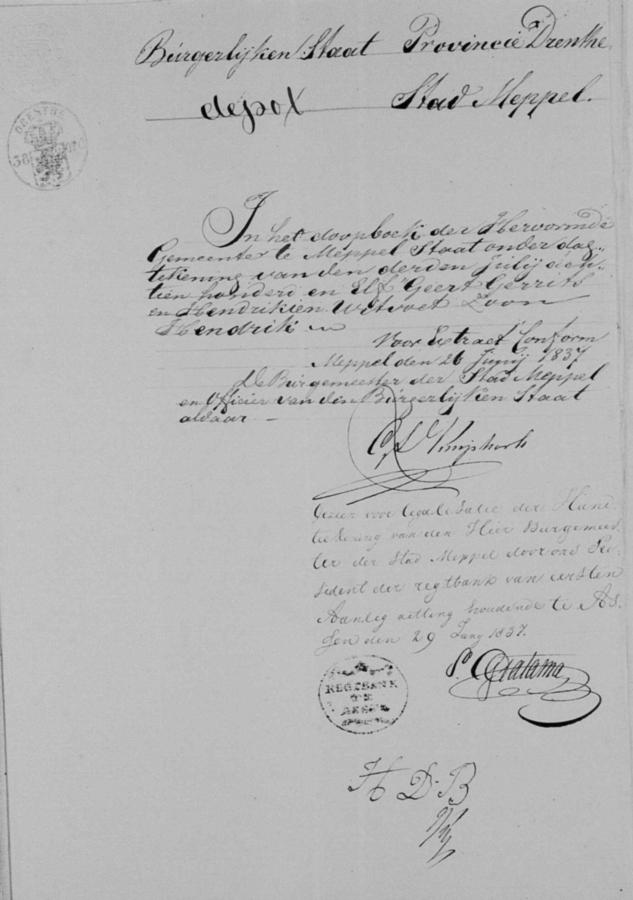 Burgerlijken Staat Provincie Drenthe
Stad Meppel.
DRENTHE
In het doopboek der Hervormde
Gemeenter te Meppel Staat onder dag-
tekening van den derden Julij
tien honderd en Elf Geert Gerrits
en Hendrikien Witvoet Zoon
Hendrik
Voor Extract Conform
Meppel den 26 Junij 1837
De Burgemeester der Stad Meppel
en Officier van den Burgerlijken Staat
aldaar
Gezien voor legalisatie der Hand
teekening van den Heer Burgemees-
ter der Stad Meppel door ons Pre-
sident der regtbank van eersten
Aanleg zitting houdende te As-
sen den 29 Juny 1837.
Gratama
REGTBANK
TE
ASSEN
H D B